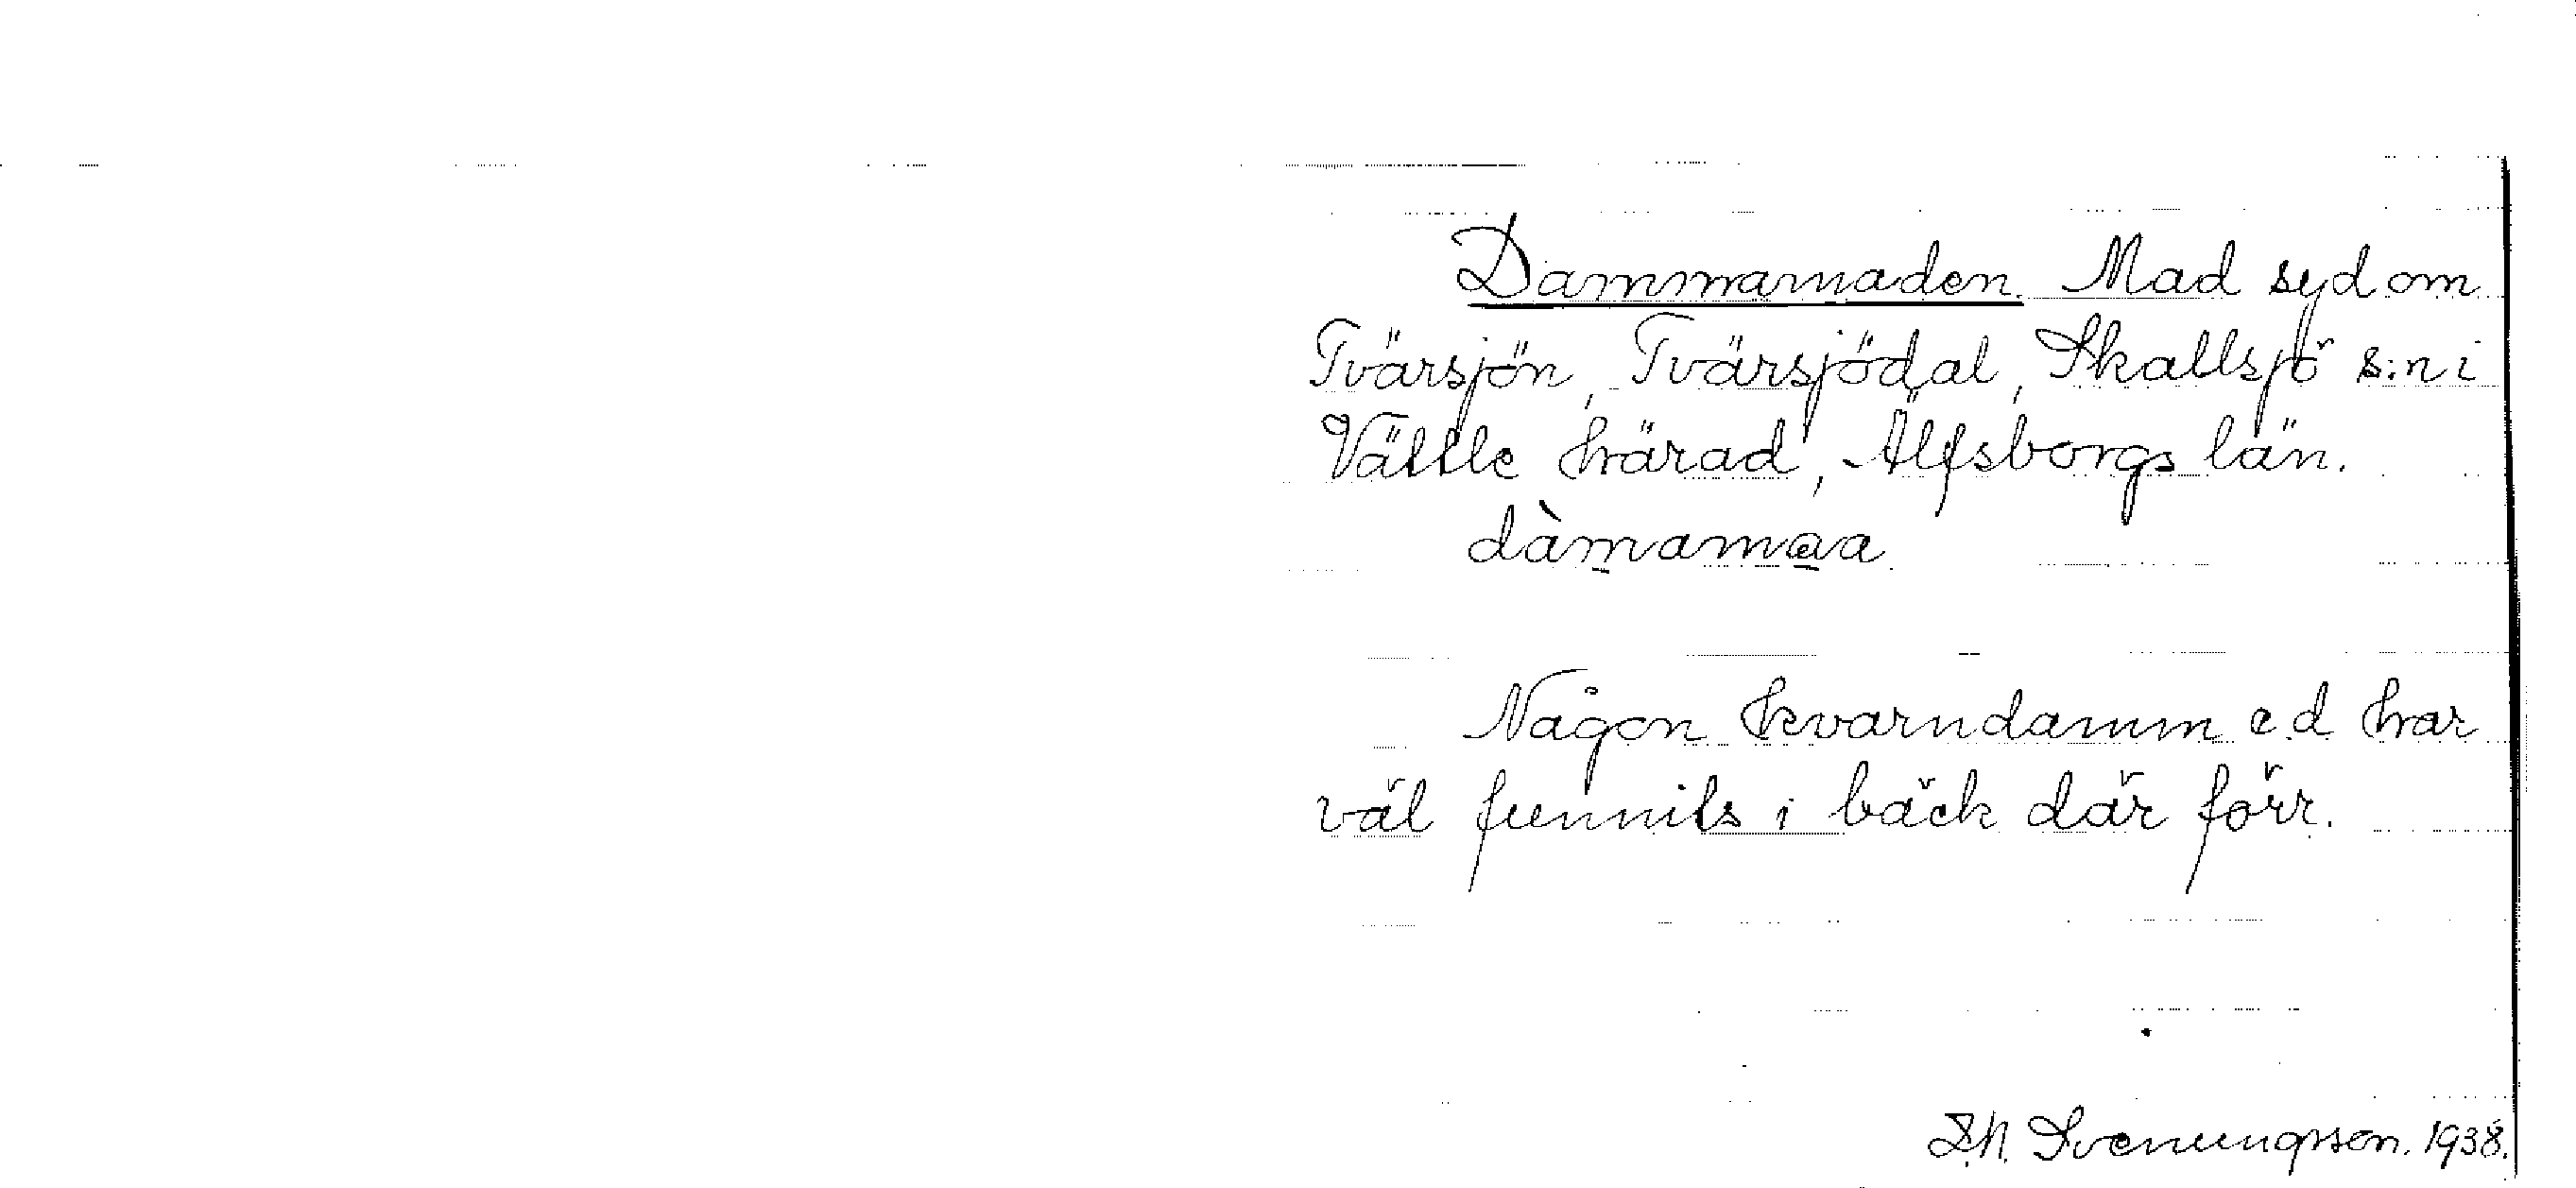 Dammamaden. Mad syd om
Tvärsjön, Tvärsjödal, Skallsjö s:n i
Vättle härad, Älfsborgs län.
dàmamaa
Någon kvarndamm e.d har
väl funnits i bäck där förr.
Svenungsson. 1938.